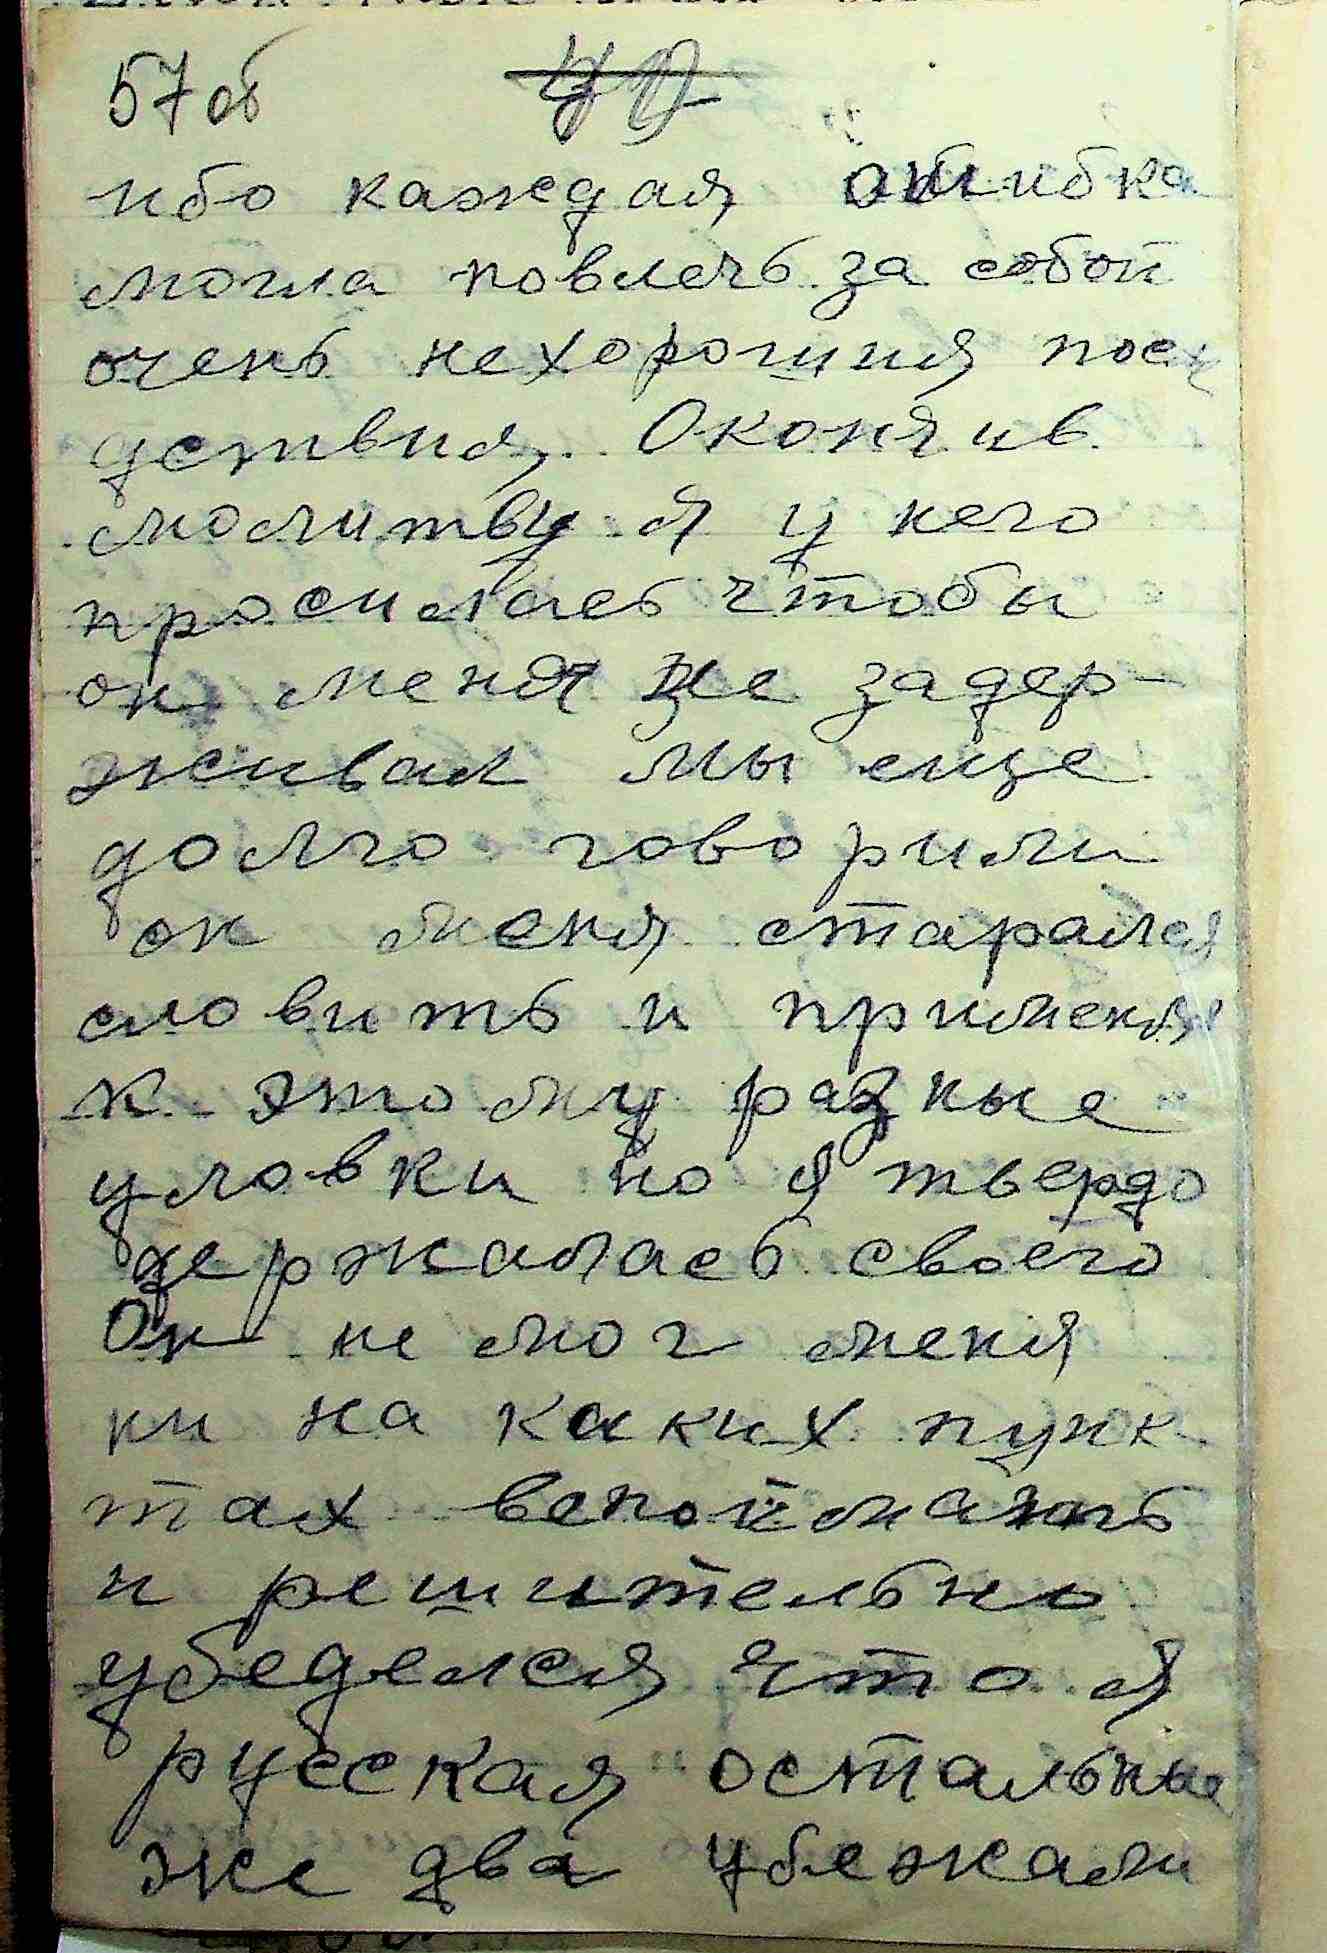 57об
ибо каждая ошибка
могла повлечь за собой
очень нехорошия посл
дствия. Окончив
молитву я у него
просилась чтобы
он меня не задер-
живал мы еще
долго говорили
он меня старался
словить и применял
к этому разные
уловки но я твердо
держалась своего
Он не мог меня
ни на каких пунк
тах вспоймать
и решительно
убеделся что я
русская остальные
же два убежали